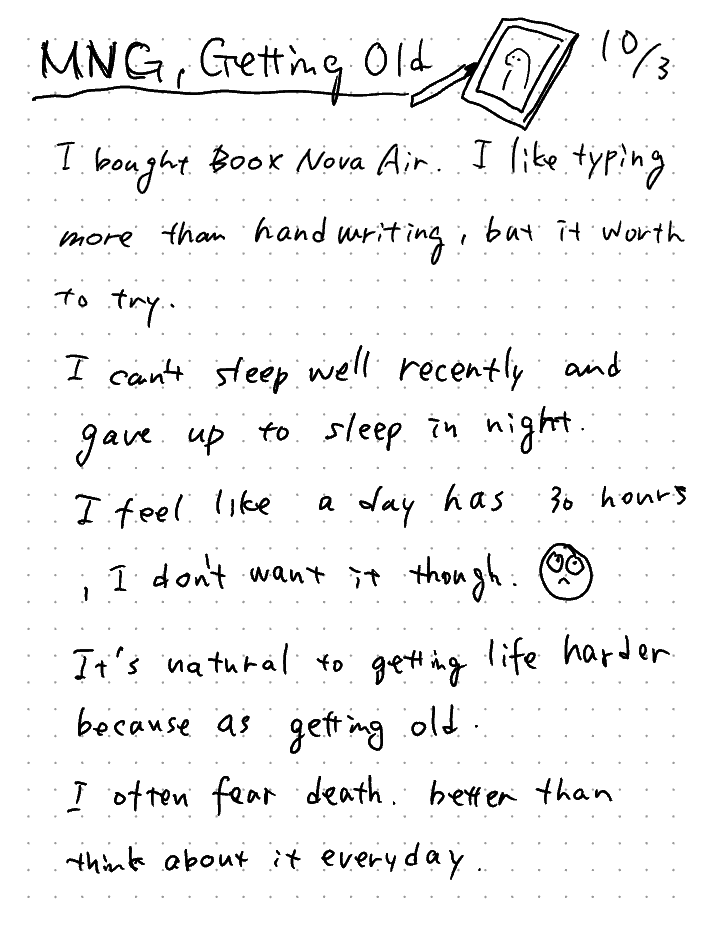 MNG, Getting Old 10/3
I bought Boox Nova Air. I like typing
more than handwriting, but it worth
to try.
I can't sleep well recently and
gave up to sleep in night.
I feel like a day has 30 hours
, I don't want it though.
It's natural to getting life harder
because as getting old.
I often fear death. better than
think about it everyday.